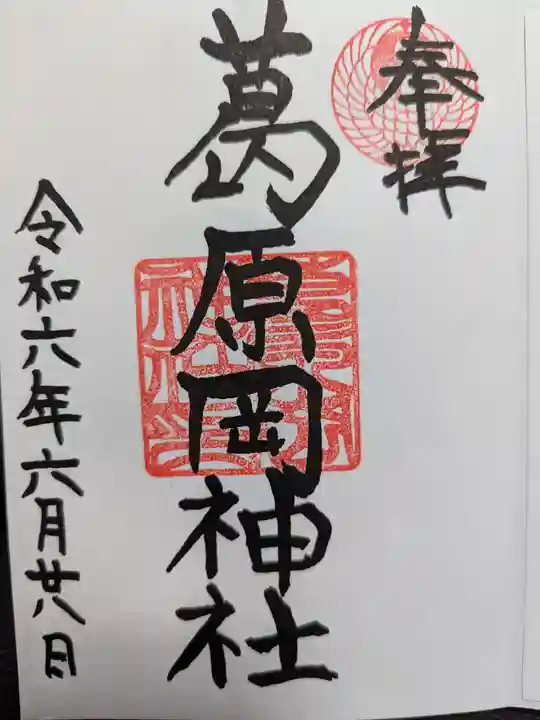 奉拝
葛原岡神社
令和六年六月廿八日